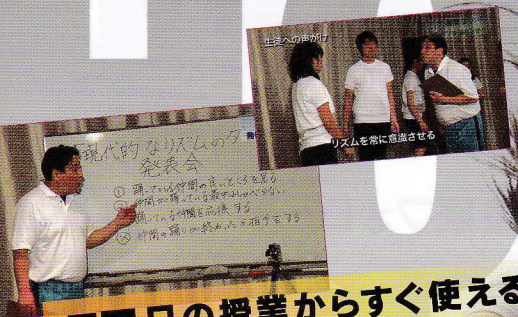 生徒への声がけ
リズムを常に意識させる
現代的なリズムのダ
発表会
① 踊っている仲間の良いところを見る
仲間が踊っている最中はしゃべらない
踊っている仲間を応援する
仲間の踊りが終わったら拍手をする
日の授業からすぐ使える